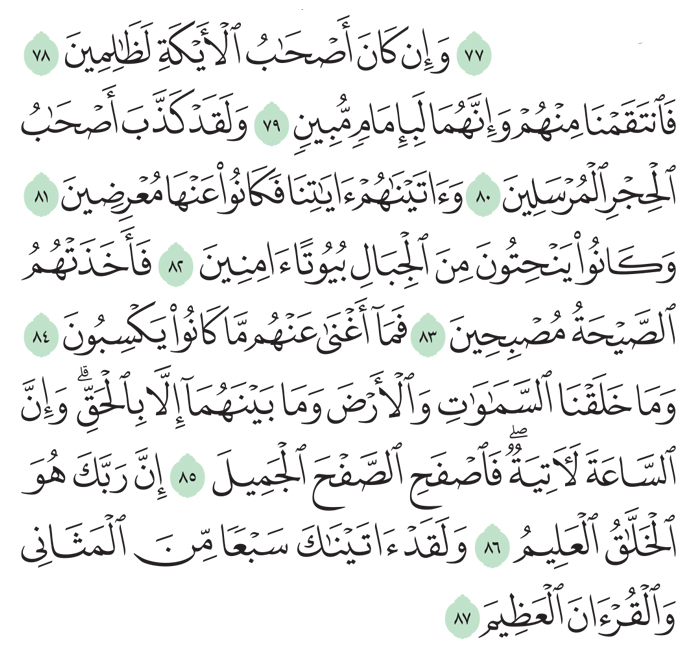 ٧٧ وَإِن كَانَ أَصْحَٰبُ ٱلْأَيْكَةِ لَظَٰلِمِينَ ٧٨
فَٱنتَقَمْنَا مِنْهُمْ وَإِنَّهُمَا لَبِإِمَامٍ مُّبِينٍ ٧٩ وَلَقَدْ كَذَّبَ أَصْحَٰبُ
ٱلْحِجْرِ ٱلْمُرْسَلِينَ ٨٠ وَءَاتَيْنَٰهُمْ ءَايَٰتِنَا فَكَانُوا۟ عَنْهَا مُعْرِضِينَ ٨١
وَكَانُوا۟ يَنْحِتُونَ مِنَ ٱلْجِبَالِ بُيُوتًا ءَامِنِينَ ٨٢ فَأَخَذَتْهُمُ
ٱلصَّيْحَةُ مُصْبِحِينَ ٨٣ فَمَآ أَغْنَىٰ عَنْهُم مَّا كَانُوا۟ يَكْسِبُونَ ٨٤
وَمَا خَلَقْنَا ٱلسَّمَٰوَٰتِ وَٱلْأَرْضَ وَمَا بَيْنَهُمَآ إِلَّا بِٱلْحَقِّ ۗ وَإِنَّ
ٱلسَّاعَةَ لَءَاتِيَةٌ ۖ فَٱصْفَحِ ٱلصَّفْحَ ٱلْجَمِيلَ ٨٥ إِنَّ رَبَّكَ هُوَ
ٱلْخَلَّٰقُ ٱلْعَلِيمُ ٨٦ وَلَقَدْ ءَاتَيْنَٰكَ سَبْعًا مِّنَ ٱلْمَثَانِى
وَٱلْقُرْءَانَ ٱلْعَظِيمَ ٨٧